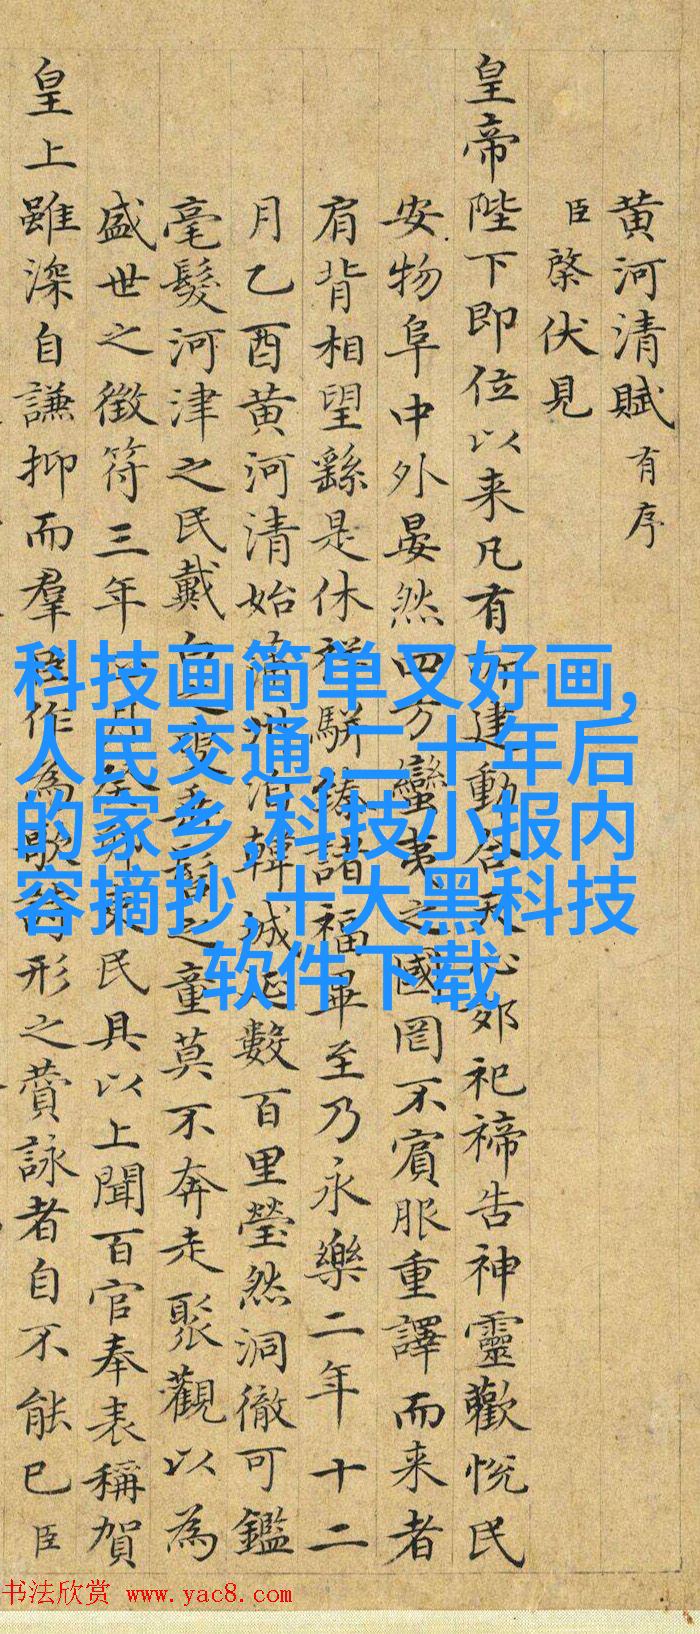 黄河清賦有序
臣棨伏見
皇帝陛下即位以来凡有所建動合天心郊祀禘告神靈歡悦民
安物阜中外晏然四方蠻夷之國罔不賓服重譯而来者
肩背相望繇是休祥駢臻諸福畢至乃永樂二年十二
月乙酉黄河清始蒲州泊韓城延數百里瑩然洞徹可鑑
毫髮河津之民戴白之叟垂髫之童莫不奔走聚觀以為
盛世之徵符三年 民具以上聞百官奉表稱賀
皇上雖深自謙抑而羣臣作為歌 形之賛詠者自不能已臣
科技画简单又好画,
人民交通,二十年后
的家乡,科技小报内
容摘抄,十大黑科技
软件下载
书法欣赏 www.yac8.com